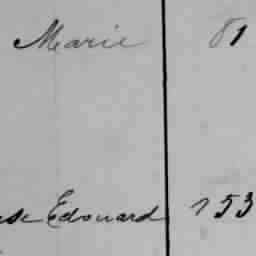 Marie 81
se Edouard 153